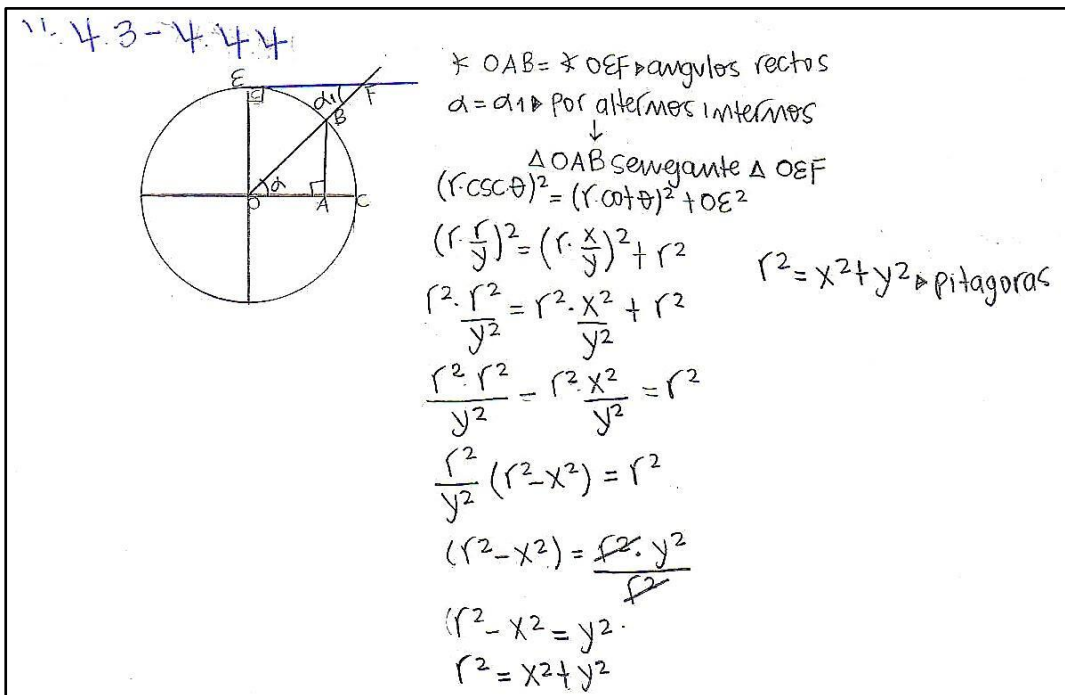 11.4.3-4.4.4
E
C
α1
F
B
α
O
A
C
∡ OAB = ∡ OEF ▹ angulos rectos
α = α1 ▹ por alternos internos
↓
Δ OAB semegante Δ OEF
(r·cscθ)² = (r·cotθ)² + OE²
(r·r/y)² = (r·x/y)² + r²
r² = x² + y² ▹ pitagoras
r²·r²/y² = r²·x²/y² + r²
r²·r²/y² - r²·x²/y² = r²
r²/y² (r²-x²) = r²
(r²-x²) = r²·y²/r²
(r²-x² = y².
r² = x²+y²